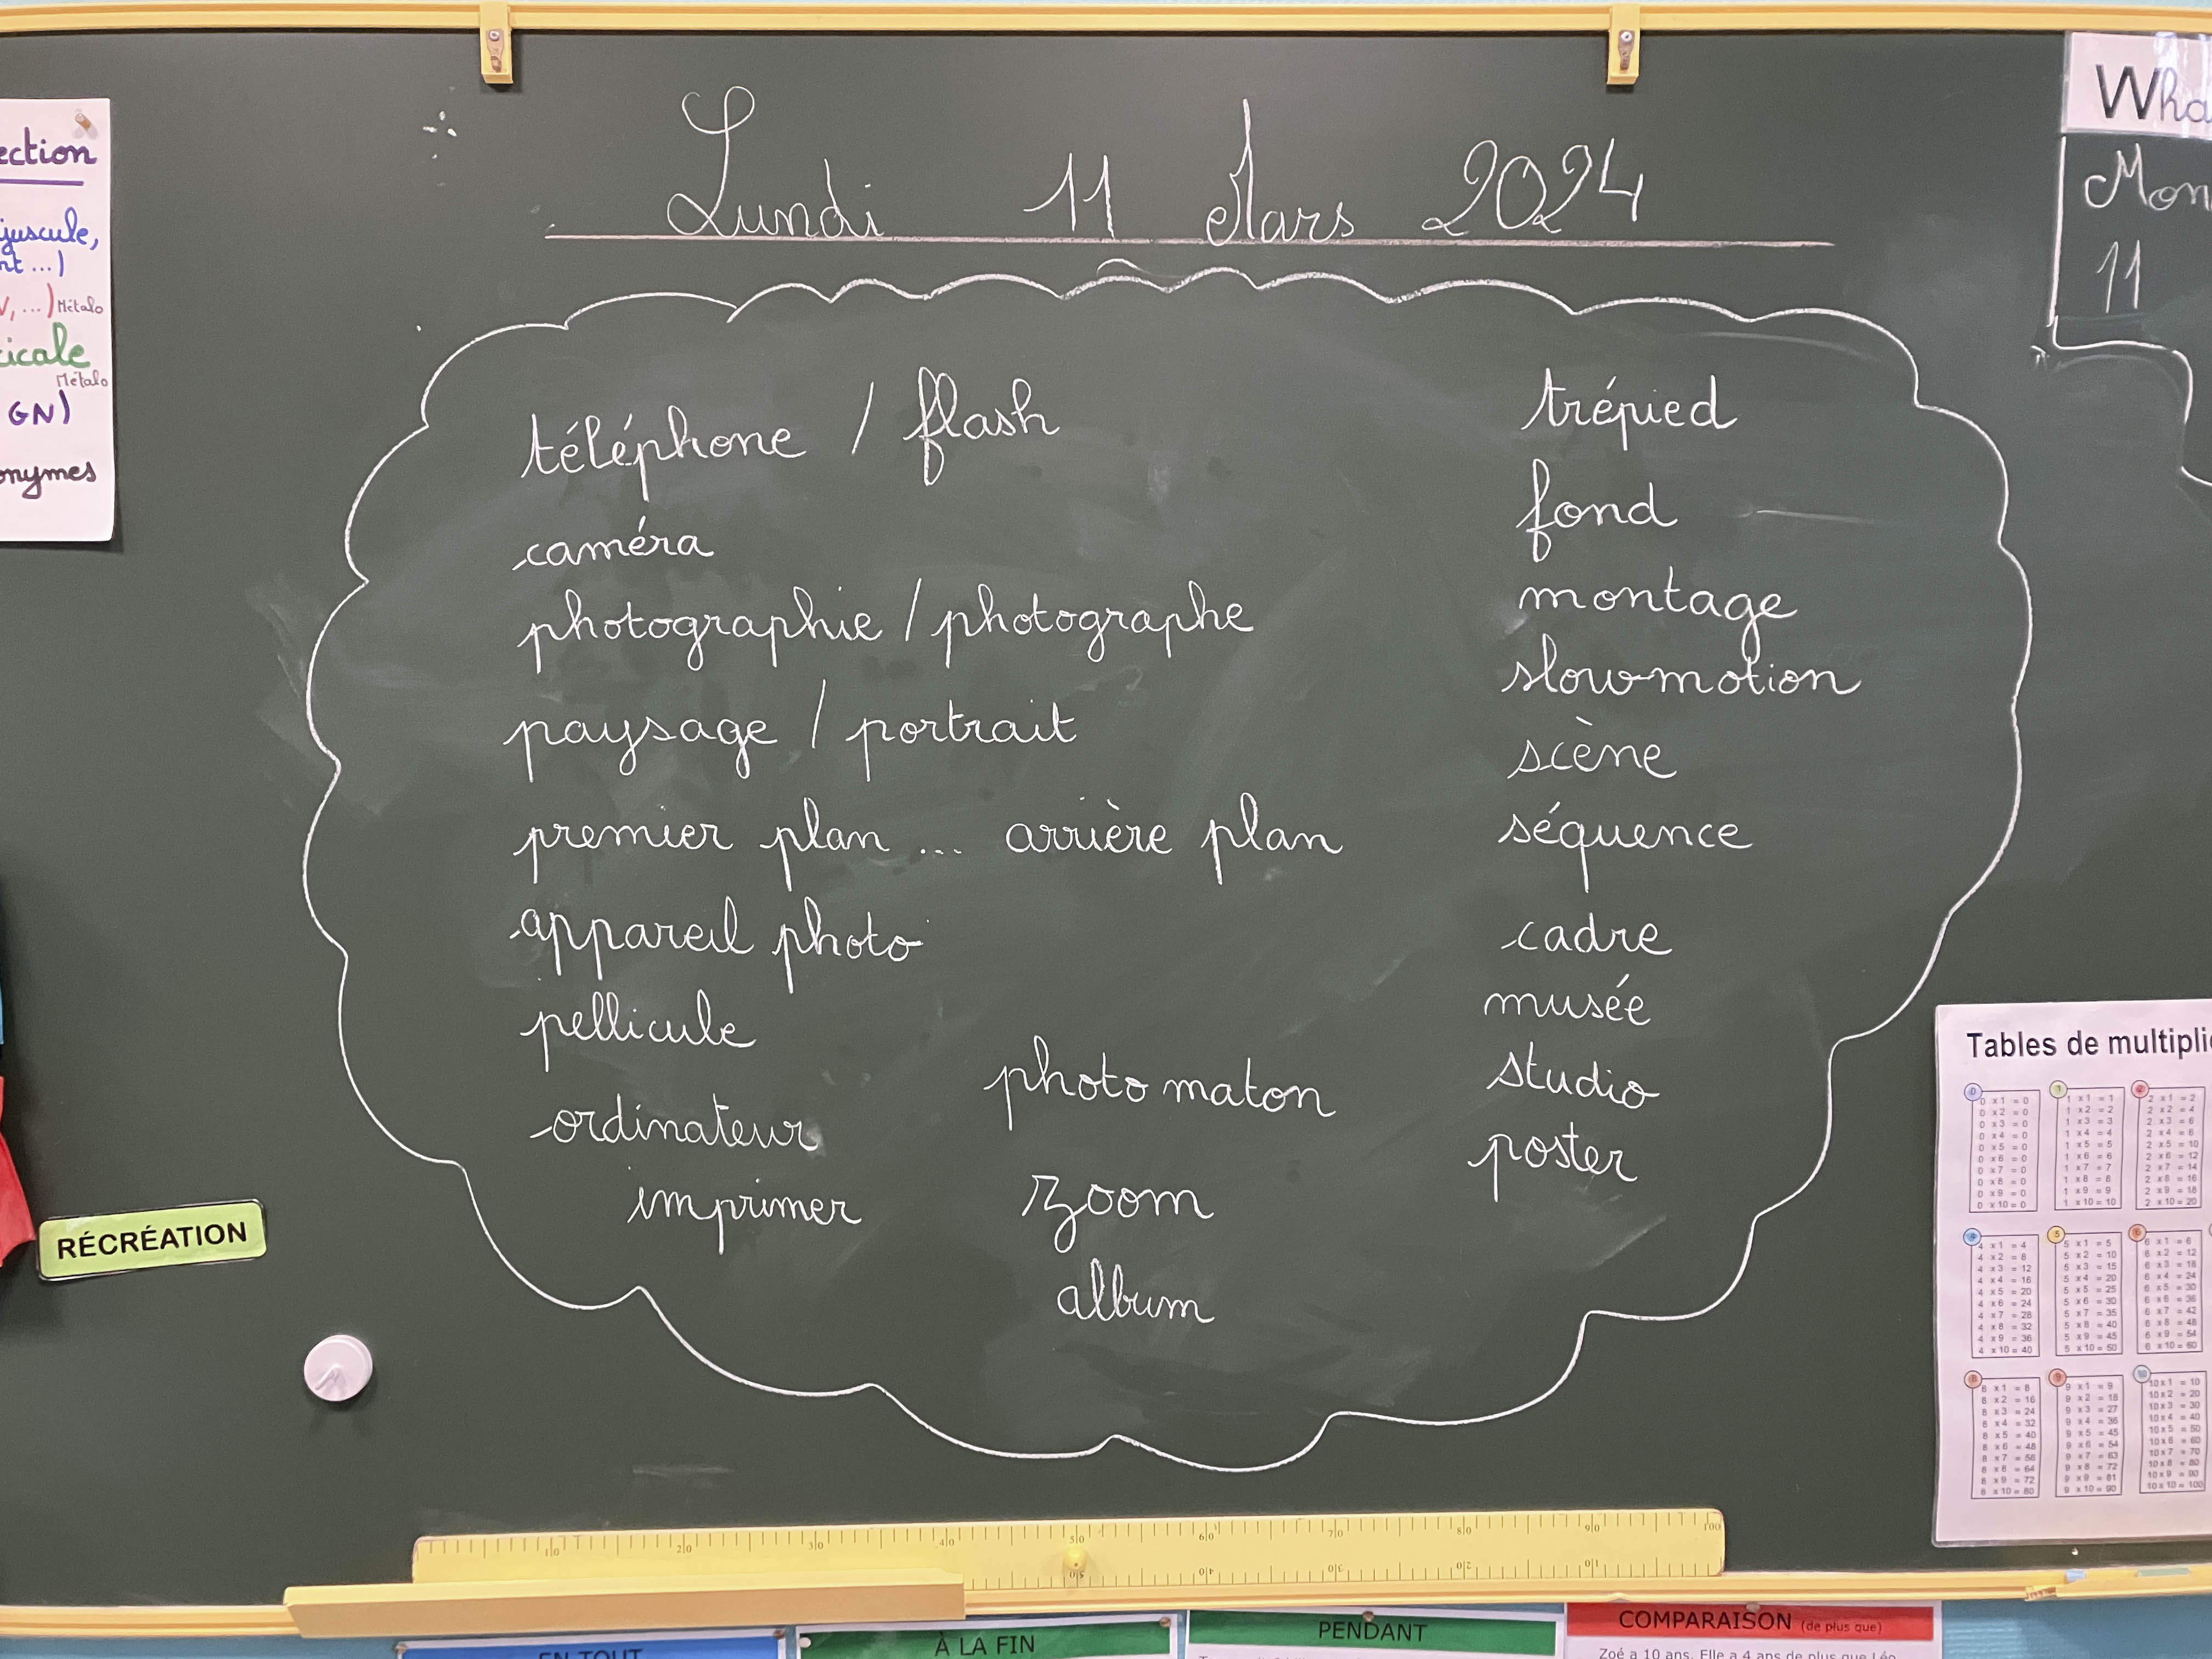 Lundi 11 Mars 2024
téléphone / flash
caméra
photographie / photographe
paysage / portrait
premier plan ... arrière plan
appareil photo
pellicule
ordinateur
imprimer
photo maton
zoom
album
trépied
fond
montage
slowmotion
scène
séquence
cadre
musée
studio
poster
ection
juscule,
nt ...)
V, ...) Métalo
icale
Métalo
GN)
onymes
RÉCRÉATION
Wha
Mon
11
Tables de multipli
0
0 x 1 = 0
0 x 2 = 0
0 x 3 = 0
0 x 4 = 0
0 x 5 = 0
0 x 6 = 0
0 x 7 = 0
0 x 8 = 0
0 x 9 = 0
0 x 10 = 0
1
1 x 1 = 1
1 x 2 = 2
1 x 3 = 3
1 x 4 = 4
1 x 5 = 5
1 x 6 = 6
1 x 7 = 7
1 x 8 = 8
1 x 9 = 9
1 x 10 = 10
2
2 x 1 = 2
2 x 2 = 4
2 x 3 = 6
2 x 4 = 8
2 x 5 = 10
2 x 6 = 12
2 x 7 = 14
2 x 8 = 16
2 x 9 = 18
2 x 10 = 20
4
4 x 1 = 4
4 x 2 = 8
4 x 3 = 12
4 x 4 = 16
4 x 5 = 20
4 x 6 = 24
4 x 7 = 28
4 x 8 = 32
4 x 9 = 36
4 x 10 = 40
5
5 x 1 = 5
5 x 2 = 10
5 x 3 = 15
5 x 4 = 20
5 x 5 = 25
5 x 6 = 30
5 x 7 = 35
5 x 8 = 40
5 x 9 = 45
5 x 10 = 50
6
6 x 1 = 6
6 x 2 = 12
6 x 3 = 18
6 x 4 = 24
6 x 5 = 30
6 x 6 = 36
6 x 7 = 42
6 x 8 = 48
6 x 9 = 54
6 x 10 = 60
8
8 x 1 = 8
8 x 2 = 16
8 x 3 = 24
8 x 4 = 32
8 x 5 = 40
8 x 6 = 48
8 x 7 = 56
8 x 8 = 64
8 x 9 = 72
8 x 10 = 80
9
9 x 1 = 9
9 x 2 = 18
9 x 3 = 27
9 x 4 = 36
9 x 5 = 45
9 x 6 = 54
9 x 7 = 63
9 x 8 = 72
9 x 9 = 81
9 x 10 = 90
10
10 x 1 = 10
10 x 2 = 20
10 x 3 = 30
10 x 4 = 40
10 x 5 = 50
10 x 6 = 60
10 x 7 = 70
10 x 8 = 80
10 x 9 = 90
10 x 10 = 100
10 20 30 40 50 60 70 80 90 100
50 40 30 20 10
EN TOUT
À LA FIN
PENDANT
COMPARAISON (de plus que)
Zoé a 10 ans. Elle a 4 ans de plus que Léo.